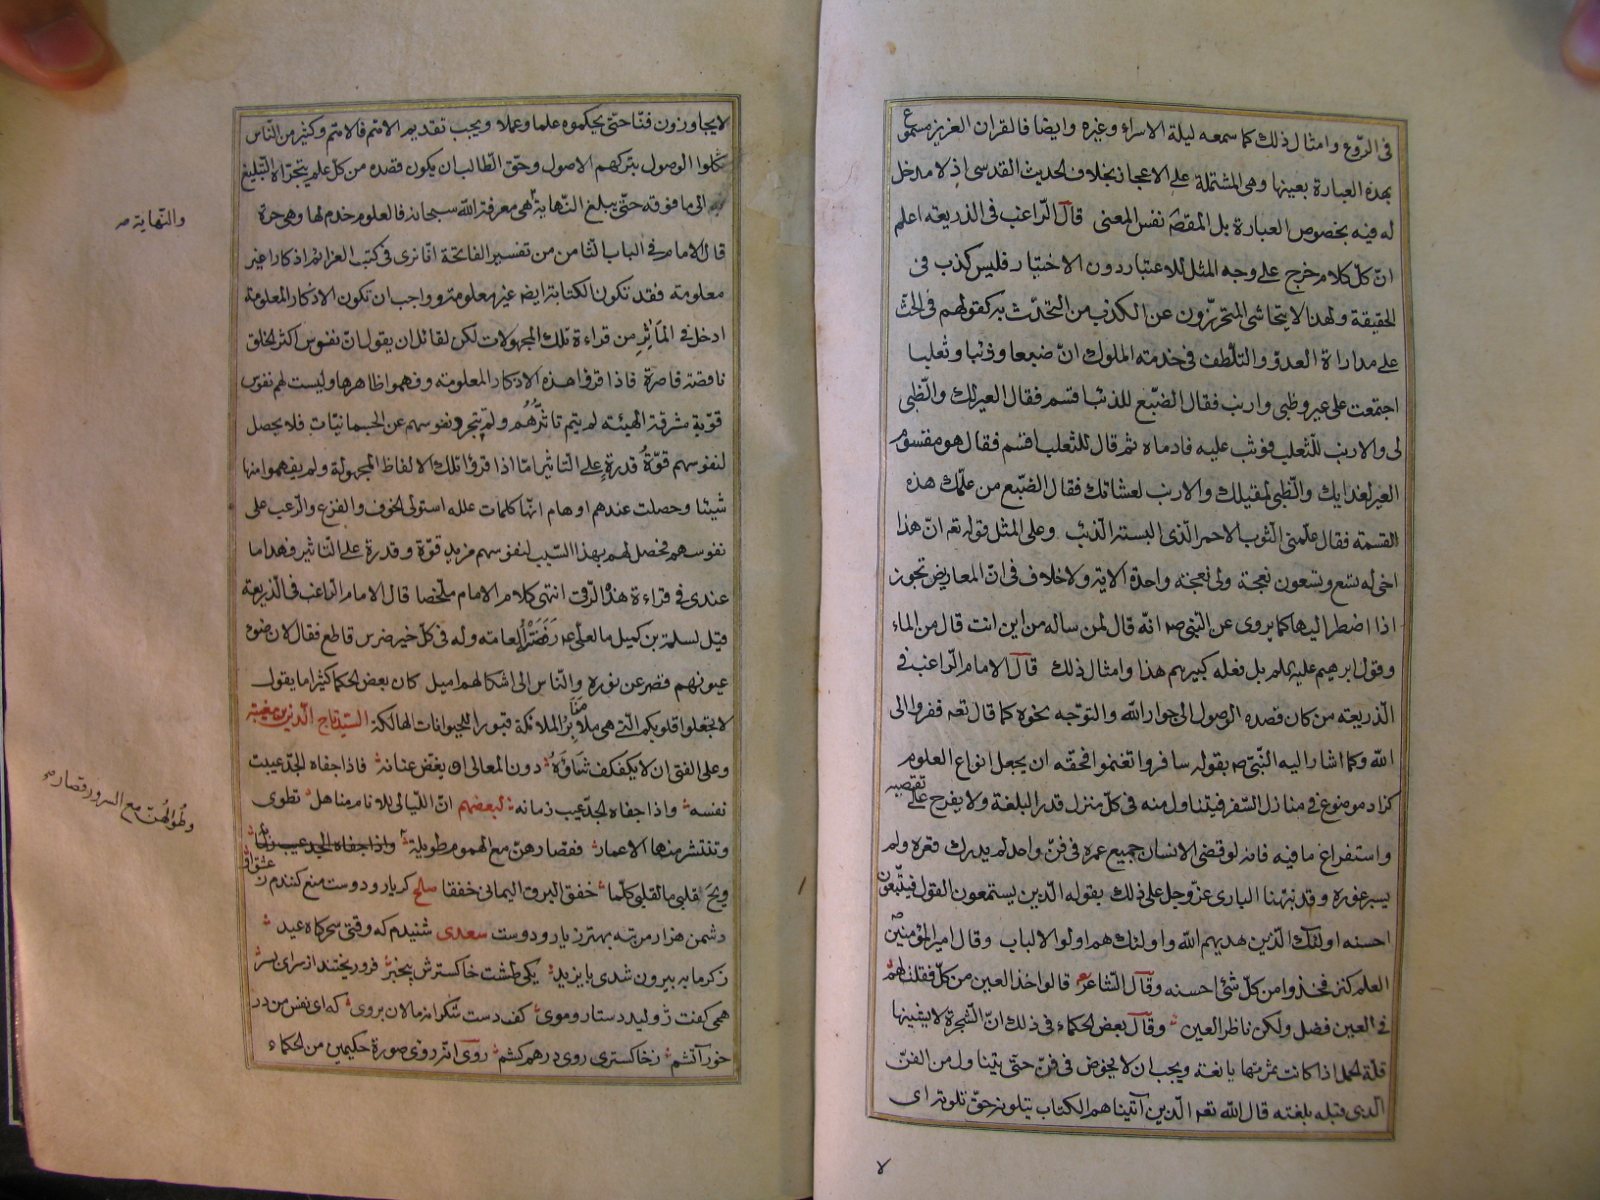 فى الروع وامثال ذلك كما سمعه ليلة الاسراء وغيره وايضا فالقران العزيز مسموع
بهذه العبارة بعينها وهى المشتملة على الاعجاز بخلاف الحديث القدسى اذ لا مدخل
له فيه بخصوص العبارة بل المقص نفس المعنى قال الراغب فى الذريعته اعلم
ان كل كلام خرج على وجه المثل للاعتبار دون الاختبار فليس كذب فى
الحقيقة ولهذا لا يتحاشى المتحرزون عن الكذب من التحدث به كقولهم فى الحث
على مداراة العدو والتلطف فى خدمته الملوك ان ضبعا وذئبا وثعلبا
اجتمعت على عير وظبى وارنب فقال الضبع للذئب اقسم فقال العير لك والظبى
لى والارنب للثعلب فوثب عليه فادماه ثم قال للثعلب اقسم فقال هو مقسوم
العير لغدايك والظبى لمقيلك والارنب لعشائك فقال الضبع من علمك هذه
القسمة فقال علمنى الثوب الاحمر الذى البسته الذئب وعلى المثل قوله تعه ان هذا
اخى له تسع وتسعون نعجة ولى نعجة واحدة الاية ولا خلاف فى ان المعاريض تجوز
اذا اضطر اليها كما يروى عن النبى ص انه قال لمن ساله من اين انت قال من الماء
وقول ابرهيم عليه بل فعله كبيرهم هذا وامثال ذلك قال الامام الراغب فى
الذريعته من كان قصده الوصول الى جوار الله والتوجه نحوه كما قال تعه ففروا الى
الله وكما اشار اليه النبى ص بقوله سافروا تغنموا فحقه ان يجعل انواع العلوم
كزاد موضوع فى منازل السفر فيتناول منه فى كل منزل قدر البلغة ولا يفرح على تقصيه
واستفراغ ما فيه فانه لو قضى الانسان جميع عمره فى فن واحد لم يدرك قعره ولم
يسبر غوره وقد نبهنا البارى عز وجل على ذلك بقوله الذين يستمعون القول فيتبعون
احسنه اولئك الذين هديهم الله واولئك هم اولو الالباب وقال امير المؤمنين
العلم كثير فخذوا من كل شئ احسنه وقال الشاعر قالوا خذ العين من كل فقلت لهم
فى العين فضل ولكن ناظر العين وقال بعض الحكماء فى ذلك ان الشجرة لا يشينها
قلة الحمل اذا كانت ثمرتها يانعة ويجب ان لا يخوض فى فن حتى يتناول من الفن
الذى قبله بلغته قال الله تعه الذين آتيناهم الكتاب يتلونه حق تلوته اى
لا يجاوزون فنا حتى يحكموه علما وعملا ويجب تقديم الاهم فالاهم وكثير من الناس
ثكلوا الوصول بتركهم الاصول وحق الطالب ان يكون قصده من كل علم يتحراه التبليغ
به الى ما فوقه حتى يبلغ النهاية هى معرفة الله سبحانه فالعلوم خدم لها وهى حرة
والنهاية ص
قال الامام فى الباب الثامن من تفسير الفاتحة انا نرى فى كتب العزائم اذكارا غير
معلومته فقد تكون الكتابة ايضا غير معلومة وواجب ان تكون الاذكار المعلومة
ادخل فى التأثير من قراءة تلك المجهولات لكن لقائل ان يقول ان نفوس اكثر الخلق
ناقصة قاصرة فاذا قرؤا هذه الاذكار المعلومته وفهموا ظاهرها وليست لهم نفوس
قوية مشرقة الهيئه لم يتم تاثرهم ولم يتجرد نفوسهم عن الجسمانيات فلا يحصل
لنفوسهم قوة قدرة على التاثير اما اذا قرؤا تلك الالفاظ المجهولة ولم يفهموا منها
شيئا وحصلت عندهم اوهام انها كلمات علله استولى الخوف والفزع والرعب على
نفوسهم فيحصل لهم بهذا السبب لنفوسهم مزيد قوة وقدرة على التاثير فهذا ما
عندى فى قراءة هذه الرقى انتهى كلام الامام ملخصا قال الامام الراغب فى الذريعة
قيل لسلمة بن كهيل ما لعلى ع رفضه العامه وله فى كل خير ضرس قاطع فقال لان ضوء
عيونهم قصر عن نوره والناس الى اشكالهم اميل كان بعض الحكما كثيرا ما يقول
لا تجعلوا قلوبكم التى هى منابر الملائكة قبورا للحيوانات الهالكة السيد تاج الدين بن معية
وعلى الفتى ان لا يكفكف شاؤه دون المعالى او يغض عنانه فاذا جفاه المجد عيبت
نفسه واذا جفاه الجد عيب زمانه لبعضهم ان الليالى للانام مناهل تطوى
وتنتشر منها الاعمار فقصارهن مع الهموم طويلة واذا جفاه الجد عيب زمانه
وطولهن مع السرور قصار
ويح قلبى ما لقلبى كلما خفق البرق اليمانى خفقا صلح كر يار ودوست منع كندم ز عشق او
دشمن هزار مرتبه بهتر ز يار ودوست سعدى شنيدم كه وقتى سحركاه عيد
ز كرمابه بيرون شدى بايزيد يكى طشت خاكسترش بيخبر فرو ريختند از سراى بسر
همى كفت ژوليده دستار وموى كف دست شكرانه مالان بروى كه اى نفس من در
خور آتشم ز خاكسترى روى درهم كشم روى انه رؤى صورة حكيمين من الحكماء